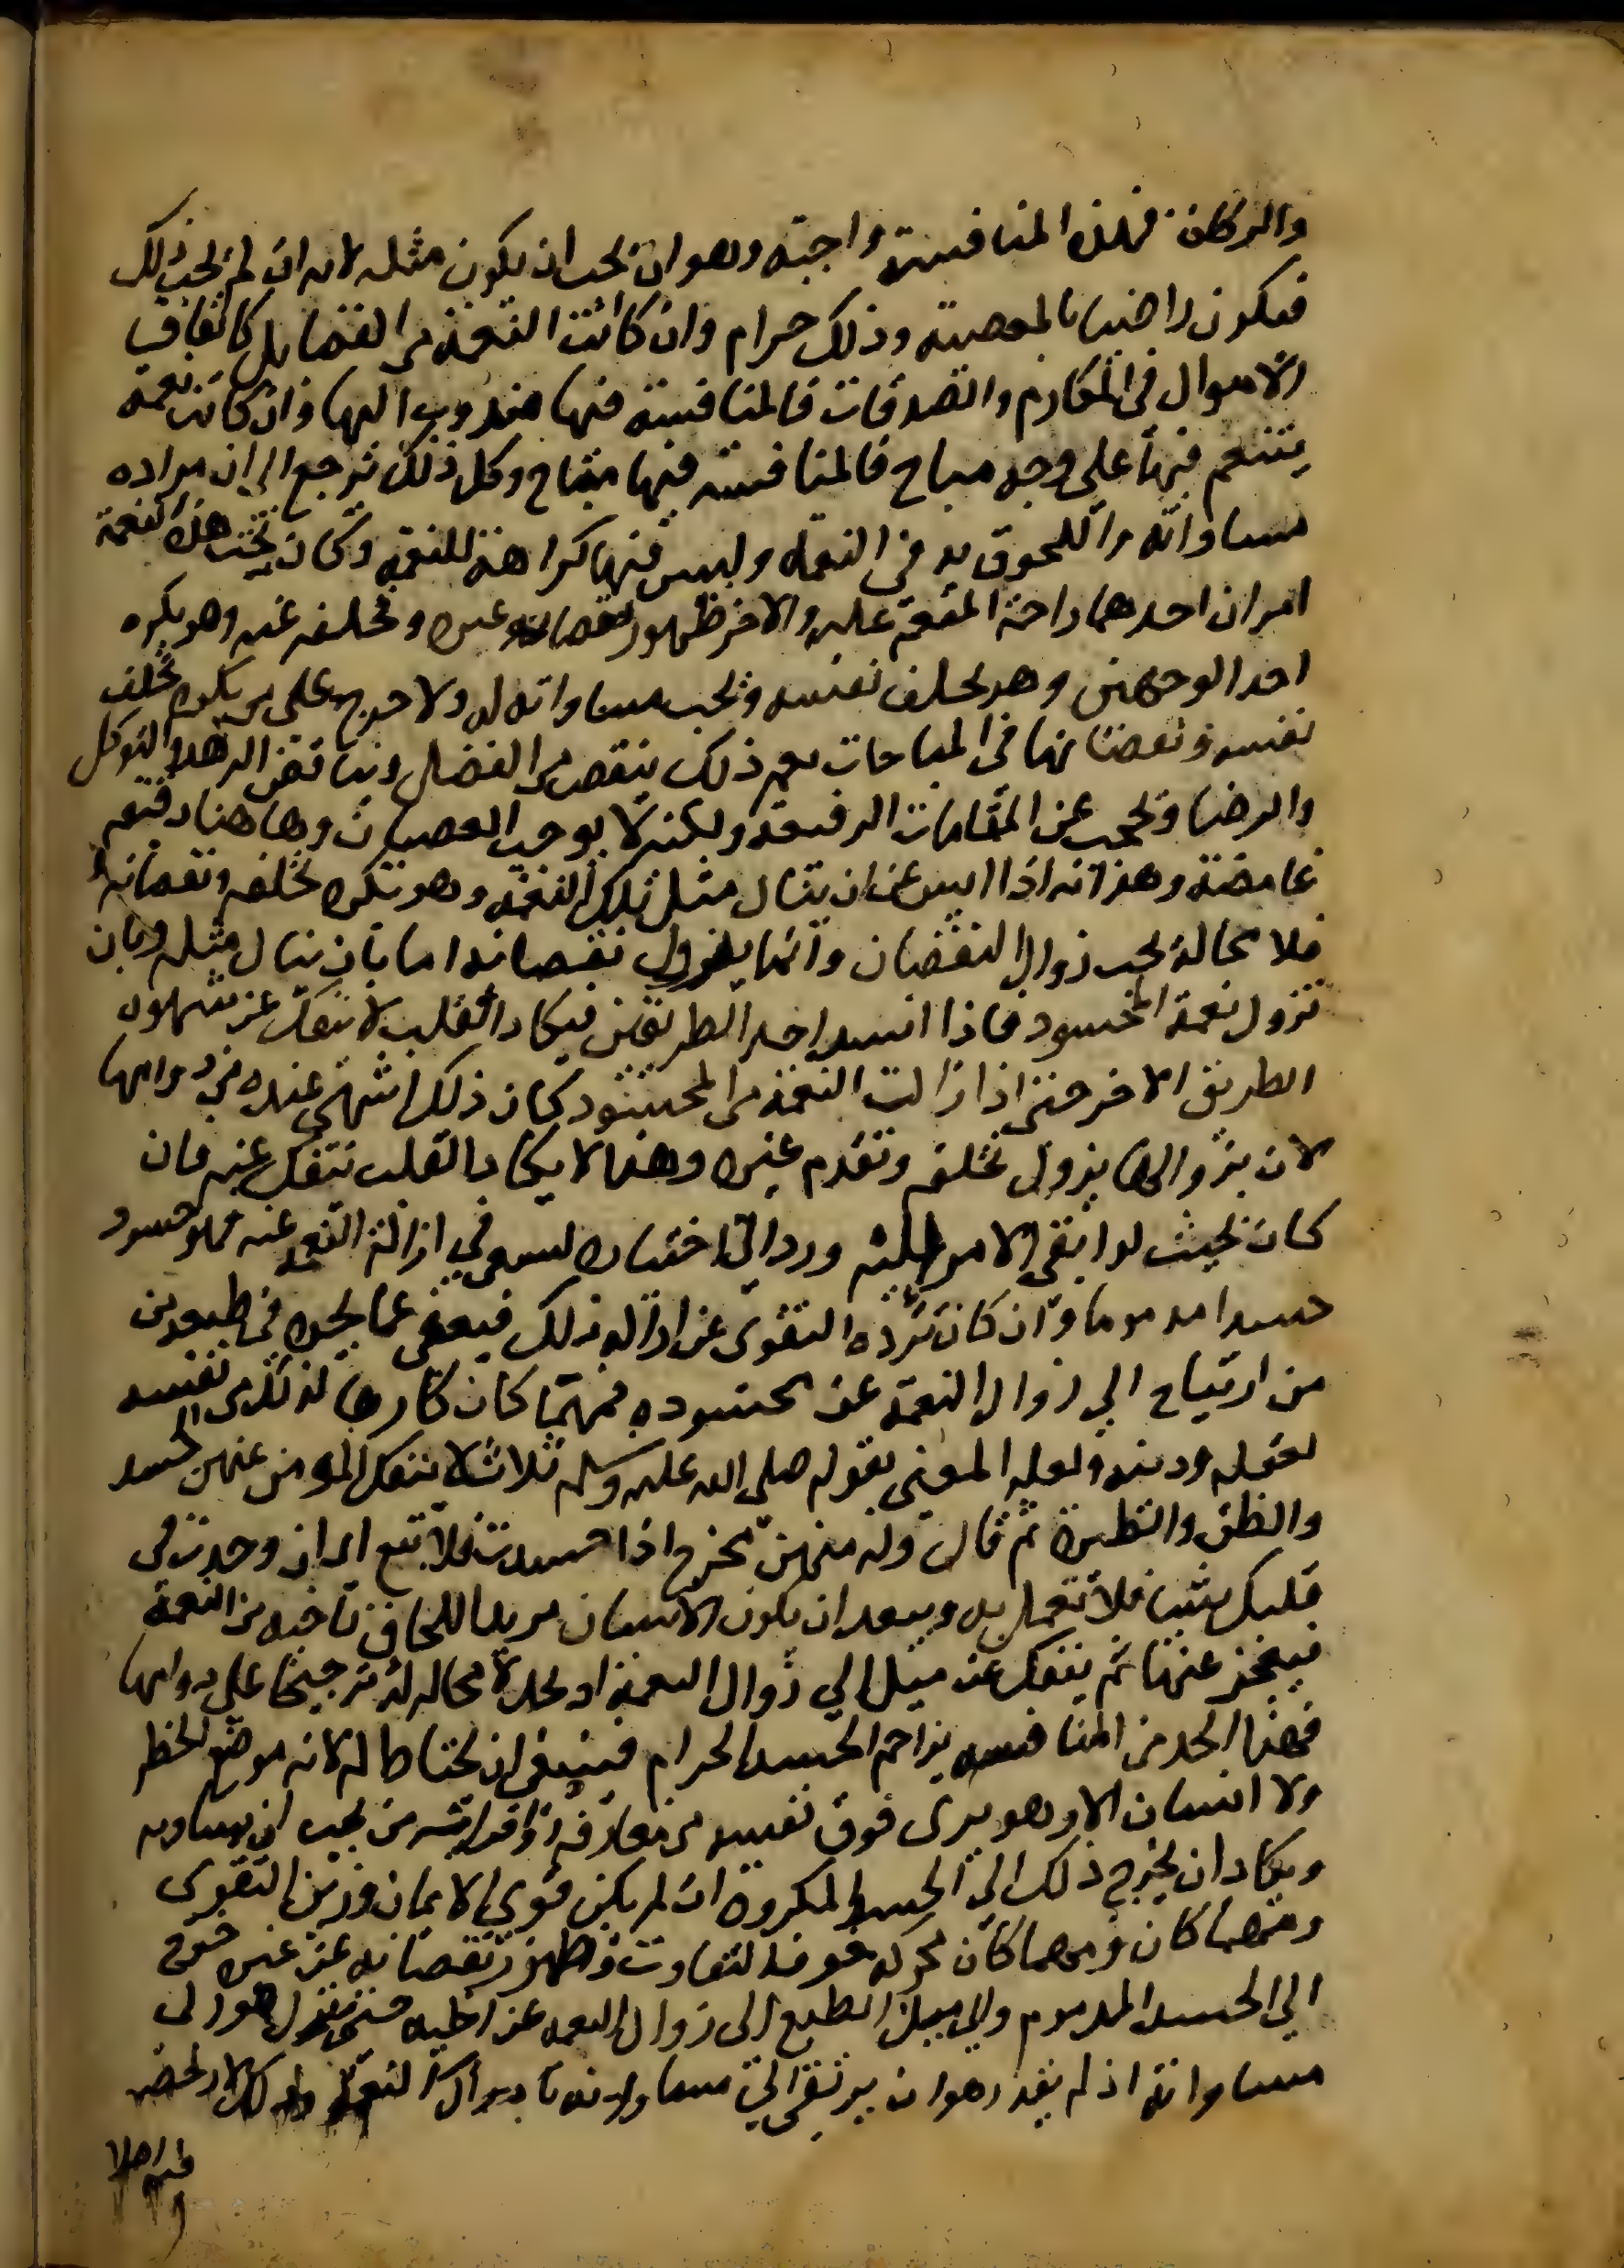 والزكاة فهذه المنافسة واجبة وهو ان يحب ان يكون مثله لانه ان لم يحب ذلك
فيكون راضيا بالمعصية وذلك حرام وان كانت النعمة من الفضايل كانفاق
الاموال في المكارم والصدقات فالمنافسة فيها مندوب اليها وان كانت نعمة
يتنعم فيها على وجه مباح فالمنافسة فيها مباح وكل ذلك يرجع الى ان مراده
مساواته واللحوق به في النعمة وليس فيها كراهة للنعمة وكان تحت هذه النعمة
امران احدهما راحة المنعم عليه والاخر ظهور نقصان غيره وتخلفه عنه وهو يكره
احد الوجهين وهو تخلف نفسه ويحب مساواته له ولا حرج على من يكره تخلف
نفسه ونقصانها في المباحات نعم ذلك ينقص من الفضل ويناقض الزهد والتوكل
والرضا ويحجب عن المقامات الرفيعة ولكنه لا يوجب العصيان وهاهنا دقيقة
غامضة وهو انه اذا ايس عن ان ينال مثل تلك النعمة وهو يكره تخلفه ونقصانه
فلا محالة يحب زوال النقصان وانما يزول نقصانه اما بان ينال مثله وبان
تزول نعمة المحسود فاذا انسد احد الطريقين فيكاد القلب لا ينفك عن شهوة
الطريق الاخر حتى اذا زالت النعمة من المحسود كان ذلك اشهى عنده من دوامها
لان بزوالها يزول تخلفه وتقدم غيره وهذا لا يكاد القلب ينفك عنه فان
كان بحيث لو ابقى الامر اليه ورد الى اختياره لسعى في ازالة النعمة عنه فهو حسود
حسدا مذموما وان كان ترده التقوى عن ازالة ذلك فيعفى عما يجده في طبعه من
من ارتياح الى زوال النعمة عن محسوده مهما كان كارها لذلك من نفسه
بعقله ودينه ولعله المعني بقوله صلى الله عليه وسلم ثلاث لا ينفك المومن عنهن الحسد
والظن والطيرة ثم قال وله منهن مخرج اذا حسدت فلا تبغ اي ان وجدت في
قلبك شيا فلا تعمل به وبعيد ان يكون الانسان مريدا للحاق باخيه من النعمة
فيعجز عنها ثم ينفك عن ميل الى زوال النعمة اذ يجد لا محالة له ترجيحا على دوامها
فهذا الحد من المنافسة يزاحم الحسد الحرام فينبغي ان يحتاط له لانه موضع الخطر
ولا انسان الا وهو يرى فوق نفسه من معارفه واقرانه من يحب ان يساويه
ويكاد ان يخرج ذلك الى الحسد المكروه ان لم يكن قوي الايمان ورزين التقوى
ومهما كان ومهما كان محركه خوف التفاوت وظهور نقصانه عن غيره جره
الى الحسد المذموم والى ميل الطبع الى زوال النعمة عن اخيه حتى ينزل هو الى
مساواته اذ لم يقدر هو ان يرتقي الى مساواته بادراك النعمة وذلك لا رخصة
فيه اصلا